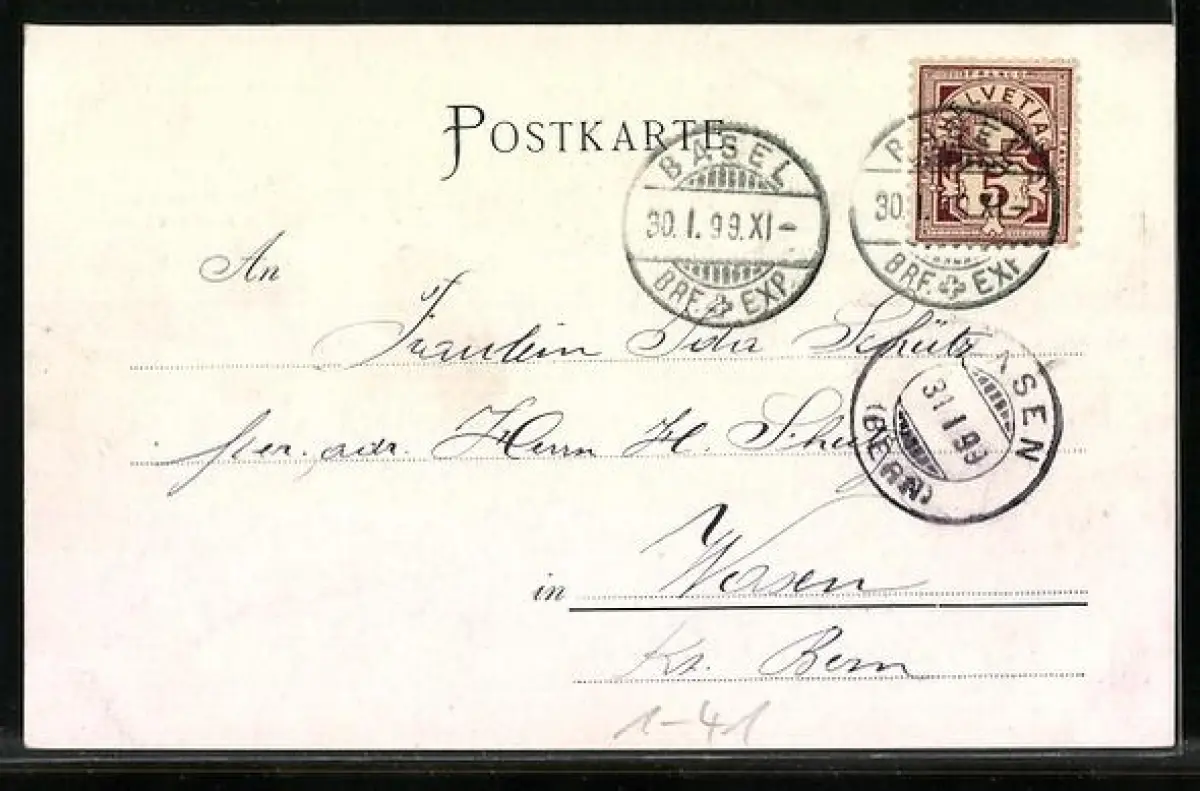 FRANCO
HELVETIA
5
POSTKARTE
BASEL
30. I. 99. XI –
BRF. EXP.
30. I. XI
BRF. EXP
An
Fräulein Ida Schütz
per. adr. Herrn H.
ASEN
31 I 99
(BERN)
in Wasen
Kt. Bern
1-41